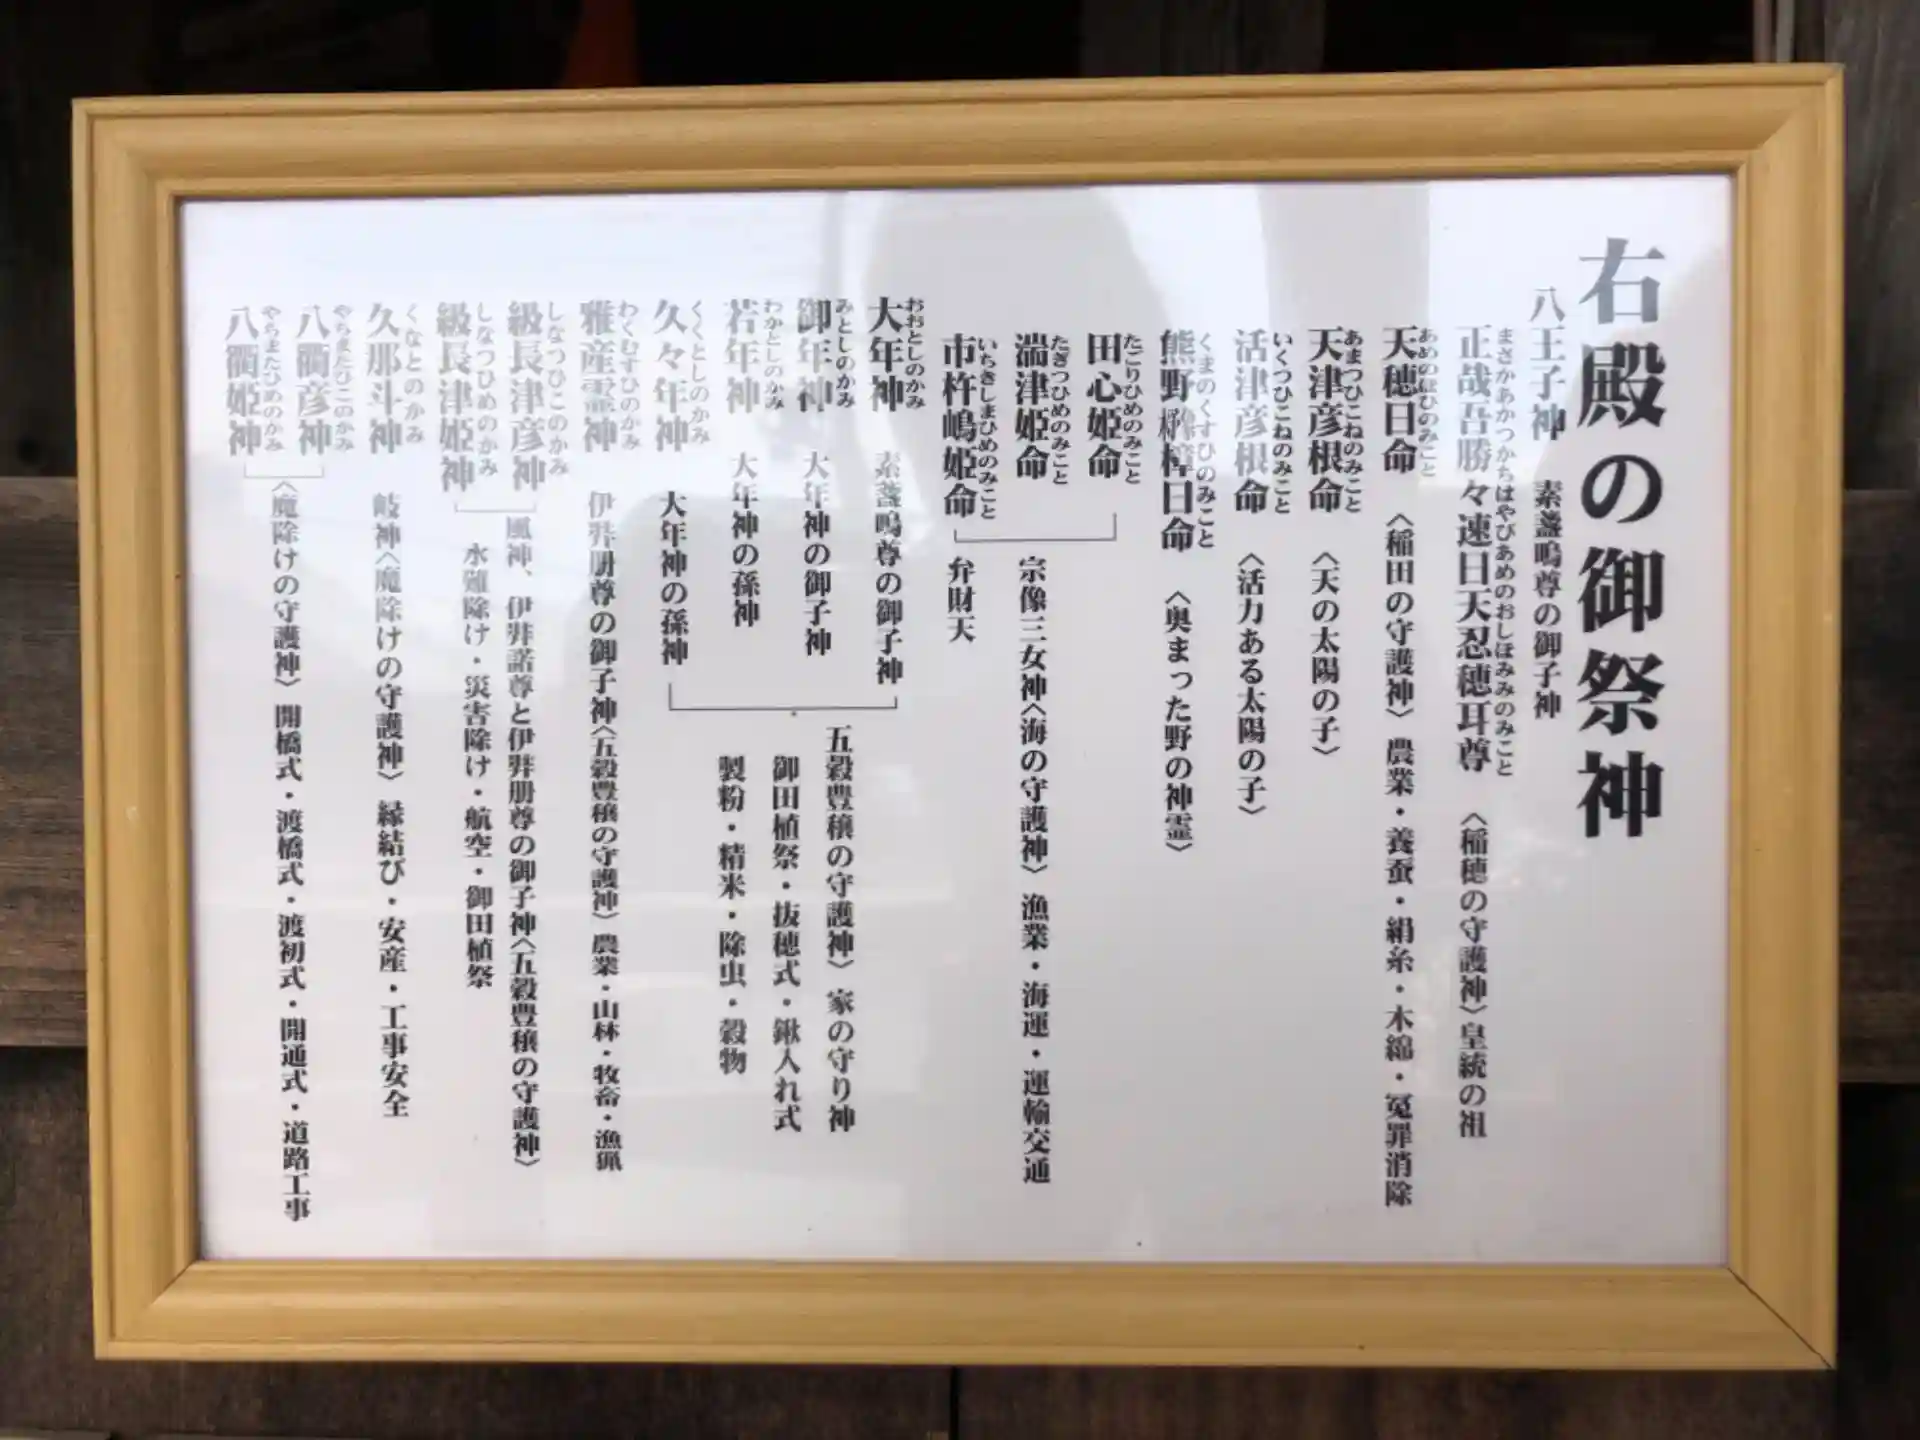 右殿の御祭神
八王子神 素盞嗚尊の御子神
まさかあかつかちはやびあめのおしほみみのみこと
正哉吾勝々速日天忍穂耳尊 〈稲穂の守護神〉皇統の祖
あめのほひのみこと
天穂日命 〈稲田の守護神〉 農業・養蚕・絹糸・木綿・冤罪消除
あまつひこねのみこと
天津彦根命 〈天の太陽の子〉
いくつひこねのみこと
活津彦根命 〈活力ある太陽の子〉
くまのくすひのみこと
熊野樟日命 〈奥まった野の神霊〉
たごりひめのみこと
田心姫命
たぎつひめのみこと
湍津姫命 宗像三女神〈海の守護神〉 漁業・海運・運輸交通
いちきしまひめのみこと
市杵嶋姫命 弁財天
おおとしのかみ
大年神 素盞嗚尊の御子神
みとしのかみ
御年神 大年神の御子神
わかとしのかみ
若年神 大年神の孫神
くくとしのかみ
久々年神 大年神の孫神
五穀豊穣の守護神〉 家の守り神
御田植祭・抜穂式・鍬入れ式
製粉・精米・除虫・穀物
わくむすひのかみ
雅産霊神 伊弉册尊の御子神〈五穀豊穣の守護神〉 農業・山林・牧畜・漁猟
しなつひこのかみ
級長津彦神 風神、伊弉諾尊と伊弉册尊の御子神〈五穀豊穣の守護神〉
しなつひめのかみ
級長津姫神 水難除け・災害除け・航空・御田植祭
くなとのかみ
久那斗神 岐神〈魔除けの守護神〉 縁結び・安産・工事安全
やちまたひこのかみ
八衢彦神
やちまたひめのかみ
八衢姫神 〈魔除けの守護神〉 開橋式・渡橋式・渡初式・開通式・道路工事